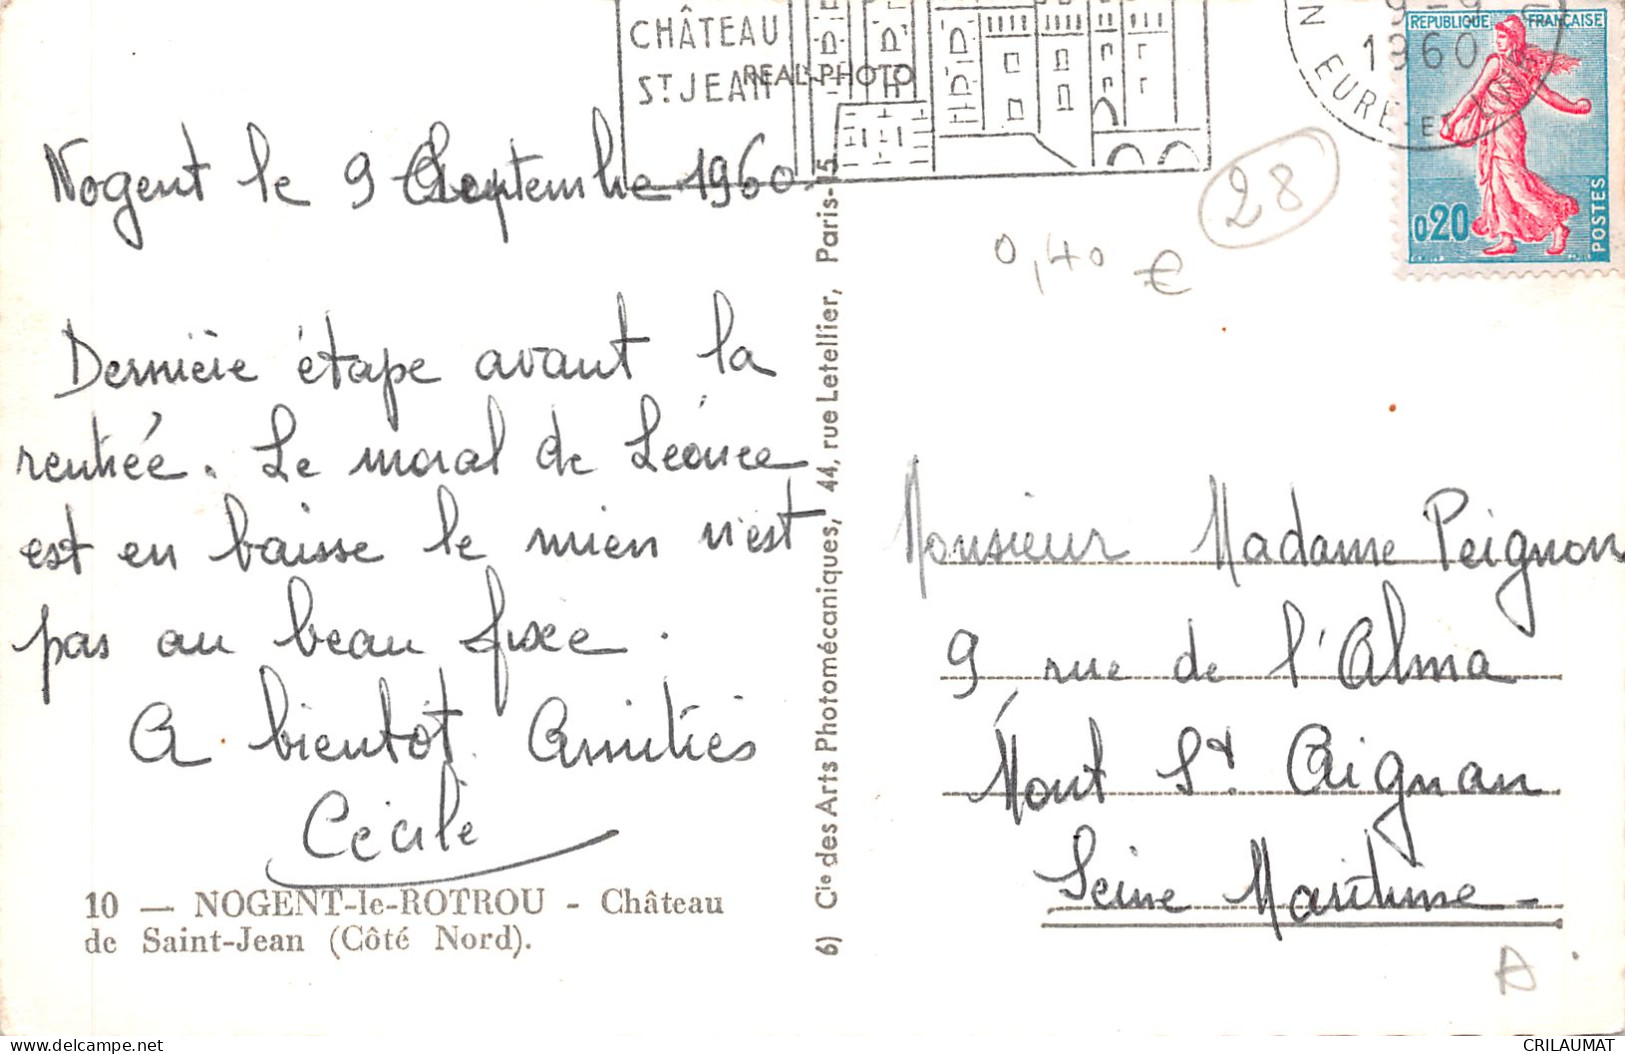 CHÂTEAU
ST JEAN
REAL-PHOTO
9-9
1960
N EURE-ET-LOIR
REPUBLIQUE FRANÇAISE
0,20
POSTES
28
0,40 €
Nogent le 9 Septembre 1960
Dernière étape avant la
rentrée. Le moral de Léonce
est en baisse le mien n'est
pas au beau fixe.
A bientôt. Amitiés
Cécile
10 — NOGENT-le-ROTROU - Château
de Saint-Jean (Côté Nord).
6) Cie des Arts Photomécaniques, 44, rue Letellier, Paris-15
Monsieur Madame Peignon
9 rue de l'Alma
Mont St. Aignan
Seine Maritime
A
delcampe.net
CRILAUMAT